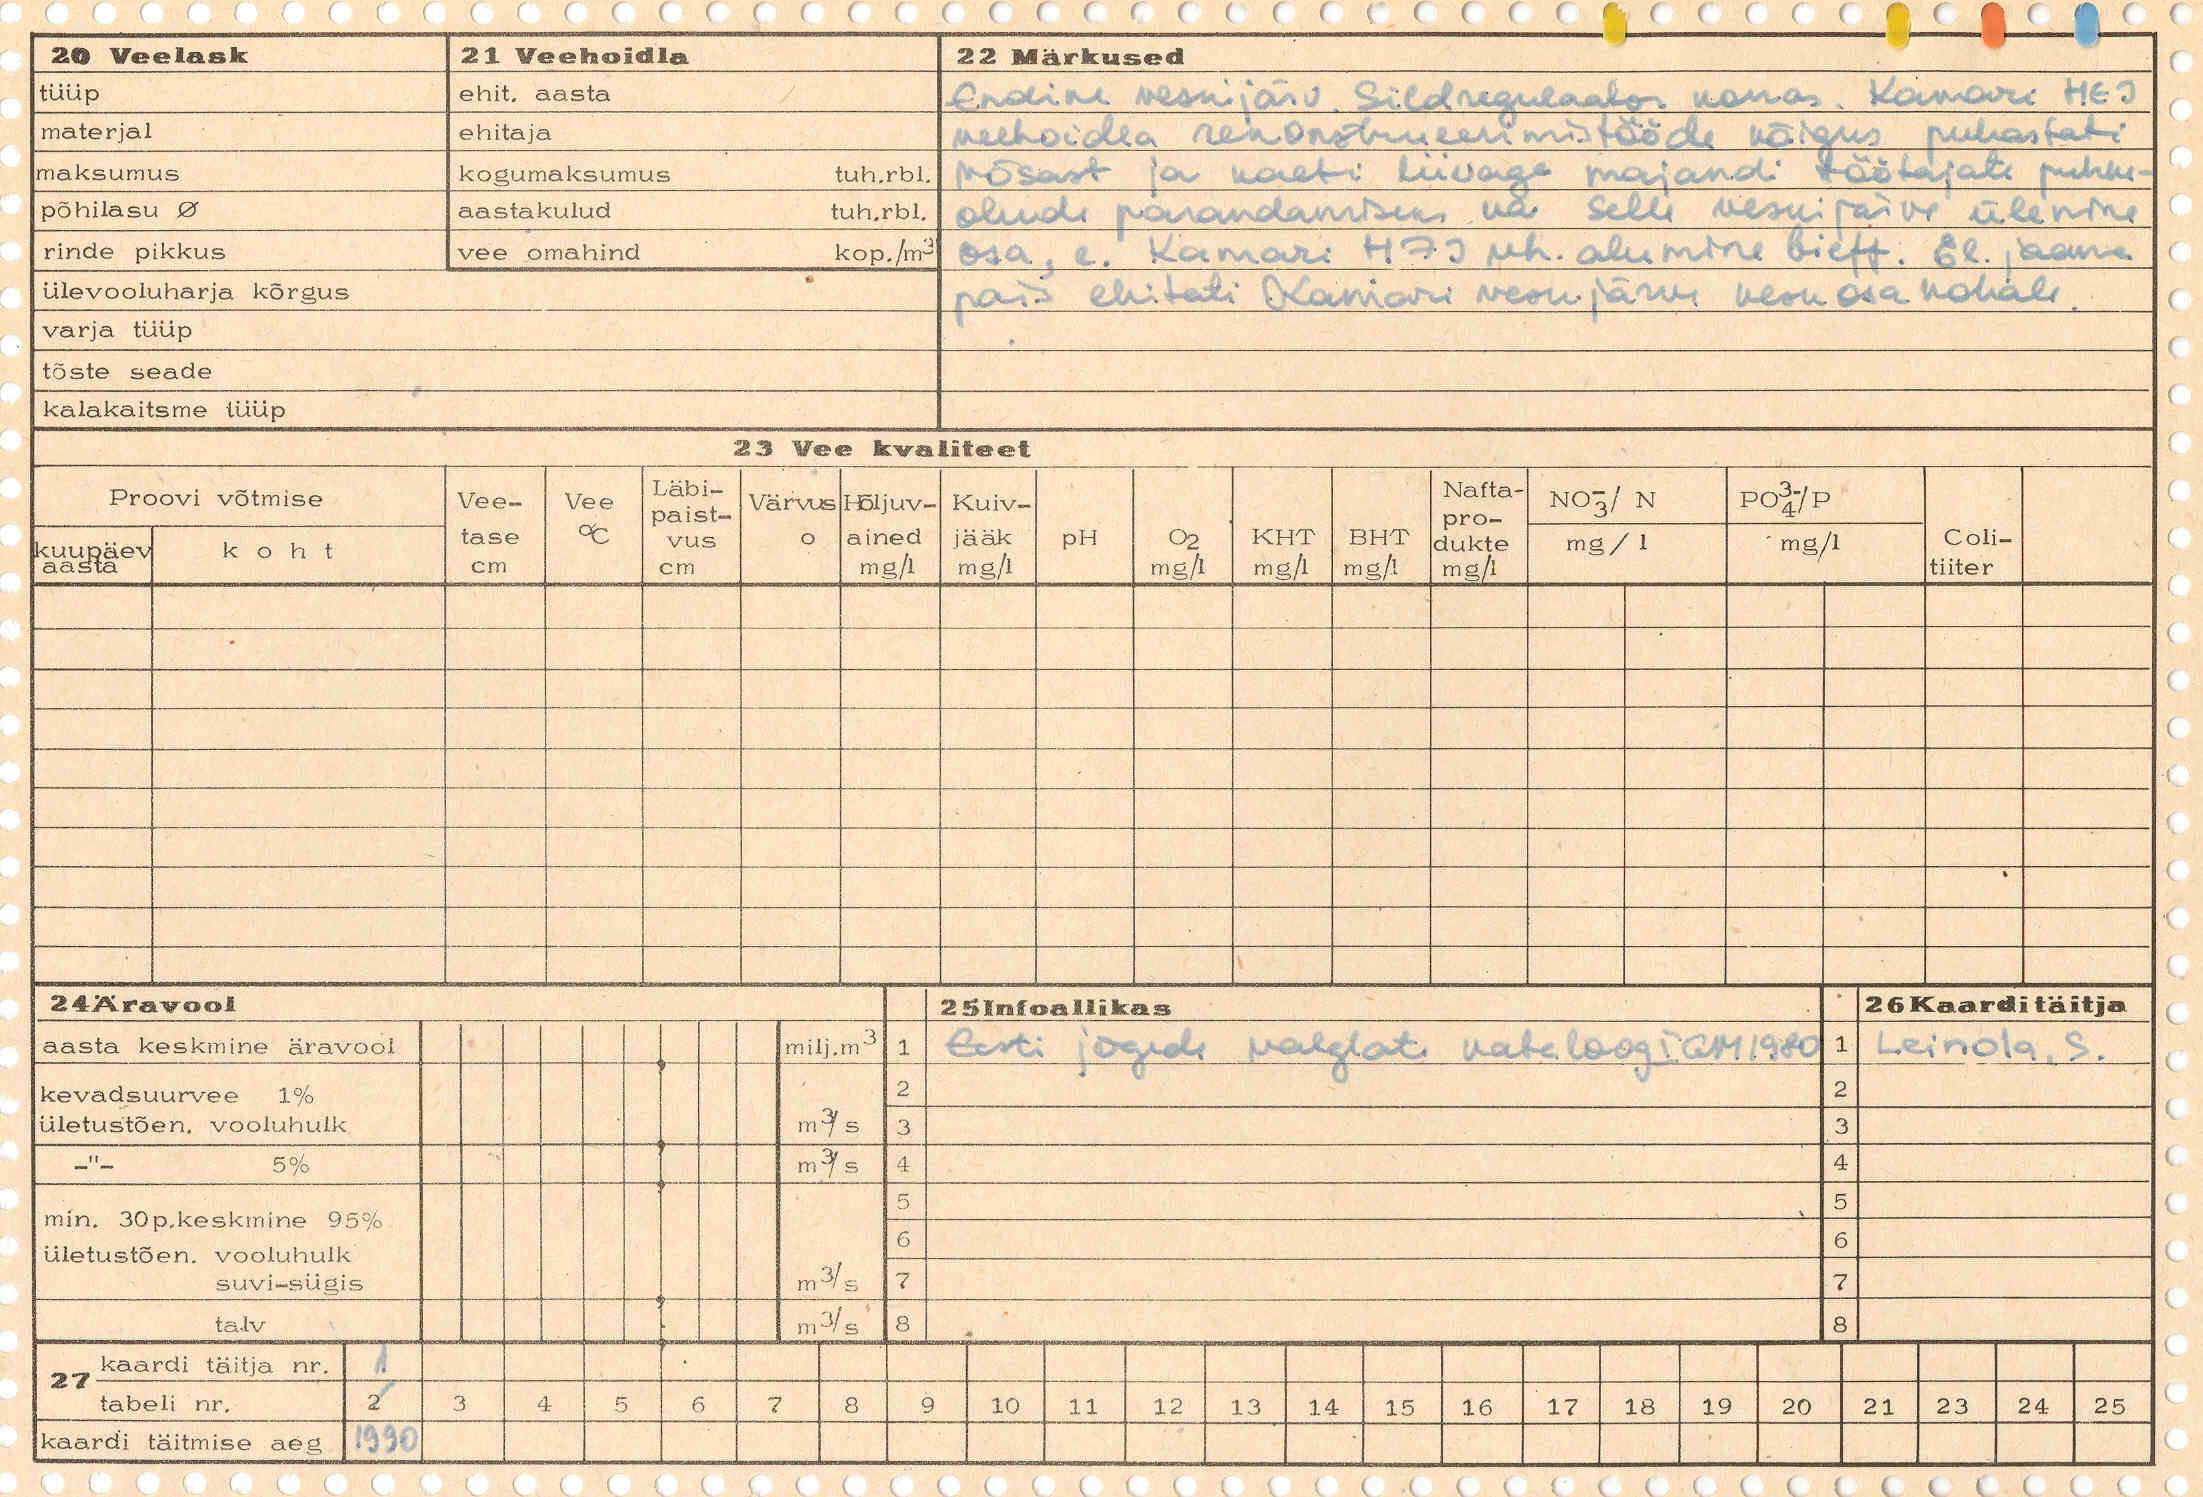 20 Veelask
tüüp
materjal
maksumus
põhilasu Ø
rinde pikkus
ülevooluharja kõrgus
varja tüüp
tõste seade
kalakaitsme tüüp
21 Veehoidla
ehit. aasta
ehitaja
kogumaksumus tuh.rbl.
aastakulud tuh.rbl.
vee omahind kop./m³
22 Märkused
Endine veskijärv. Sildregulaator korras. Kamari HEJ
veehoidla rekonstrueerimistööde käigus puhastati
võsast ja kaeti liivaga majandi töötajate puhke-
olude parandamiseks ka selle veskijärve ülemine
osa, e. Kamari HEJ vh. alumine bieff. El. jaama
pais ehitati Kamari veskijärve keskosa kohale.
23 Vee kvaliteet
Proovi võtmise
kuupäev aasta
koht
Vee-tase cm
Vee °C
Läbi-paist-vus cm
Värvus o
Hõljuv-ained mg/l
Kuiv-jääk mg/l
pH
O2 mg/l
KHT mg/l
BHT mg/l
Nafta-pro-dukte mg/l
NO₃⁻/ N mg/l
PO₄³⁻/P mg/l
Coli-tiiter
24 Äravool
aasta keskmine äravool milj.m³
kevadsuurvee 1%
ületustõen. vooluhulk m³/s
-"- 5% m³/s
min. 30p.keskmine 95%
ületustõen. vooluhulk
suvi-sügis m³/s
talv m³/s
25 Infoallikas
1 Eesti jõgede valglate kataloog 1980
2
3
4
5
6
7
8
26 Kaarditäitja
1 Leinola, S.
2
3
4
5
6
7
8
27 kaardi täitja nr. 1
tabeli nr. 2 3 4 5 6 7 8 9 10 11 12 13 14 15 16 17 18 19 20 21 23 24 25
kaardi täitmise aeg 1990